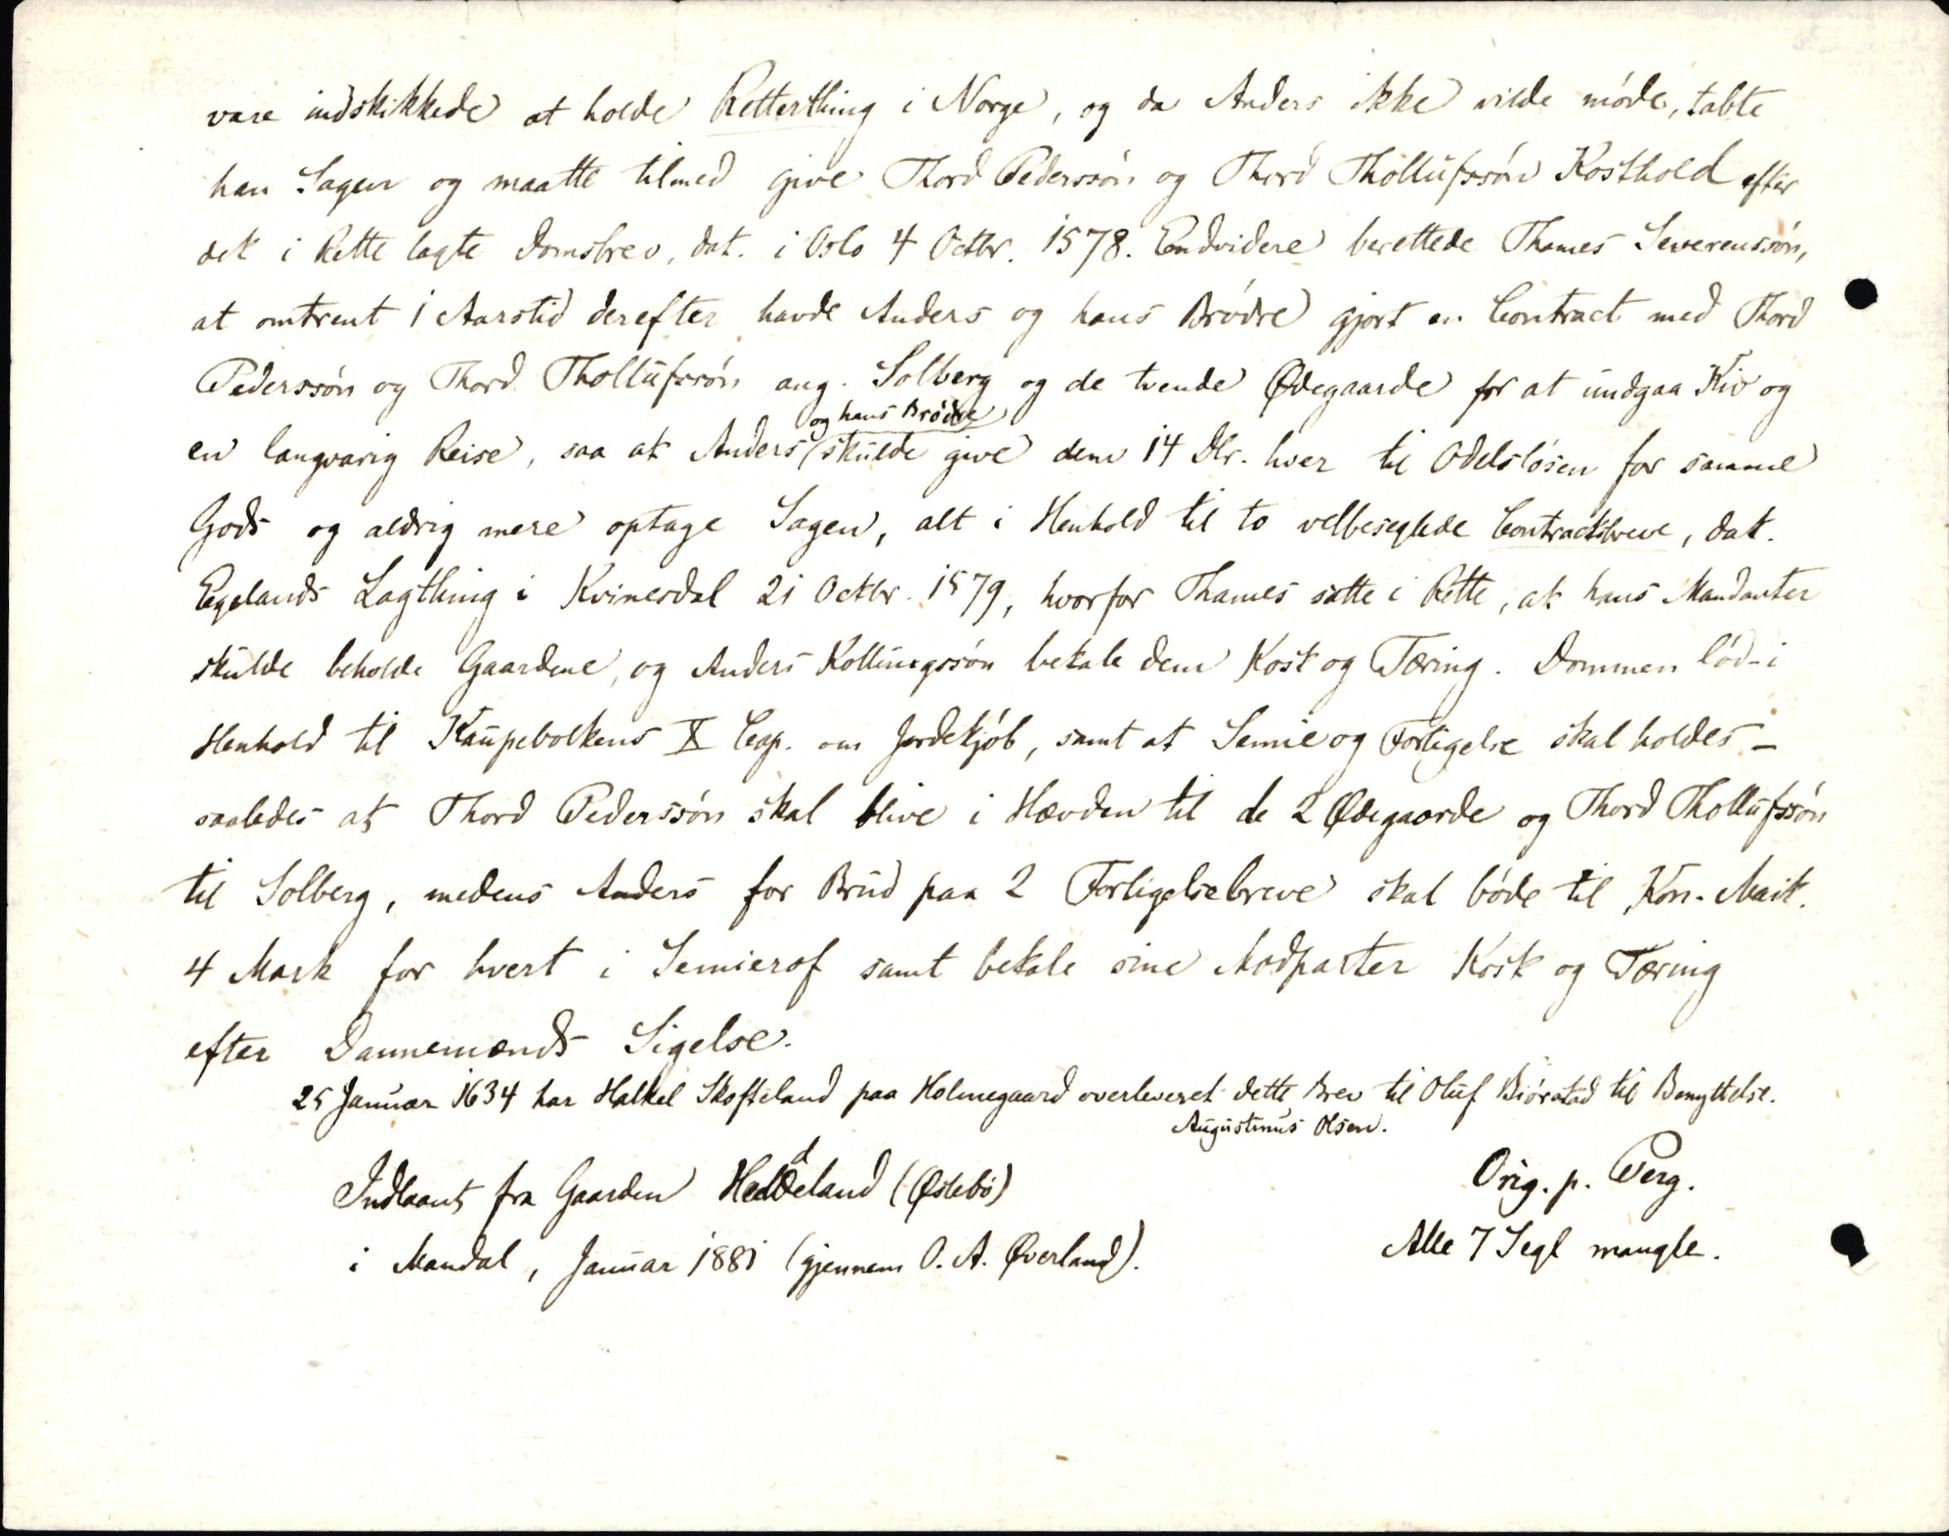 vare indskikkede at holde Retterthing i Norge, og da Anders ikke vilde møde, tabte
han Sagen og maatte tilmed give Thord Pederssøn og Thord Thollufssøn Kosthold efter
det i Rette lagte Domsbrev, dat. i Oslo 4 Octbr. 1578. Endvidere berettede Thames Severenssøn,
at omtrent 1 Aarstid derefter havde Anders og hans Brødre gjort en Contract med Thord
Pederssøn og Thord Thollufssøn ang. Solberg og de tvende Ødegaarde for at undgaa Kiv og
og hans Brødre
en langvarig Reise, saa at Anders skulde give dem 14 Dlr. hver til Odelsløsen for samme
Gods og aldrig mere optage Sagen, alt i Henhold til to velbeseglede Contractsbreve, dat.
Egelands Lagthing i Kvinesdal 21 Octbr. 1579, hvorfor Thames satte i Rette, at hans Mandanter
skulde beholde Gaardene, og Anders Kollungssøn betale dem Kost og Tæring. Dommen lød - i
Henhold til Kaupebolkens X Cap. om Jordekjøb, samt at Semie og Forligelse skal holdes -
saaledes at Thord Pederssøn skal blive i Hævden til de 2 Ødegaarde og Thord Thollufssøn
til Solberg, medens Anders for Brud paa 2 Forligelsebreve skal bøde til Kon. Mait.
4 Mark for hvert i Semierof samt betale sine Modparter Kost og Tæring
efter Dannemænds Sigelse.
25 Januar 1634 har Halkel Skofteland paa Holmegaard overleveret dette Brev til Oluf Biørstad til Benyttelse.
Augustinus Olsen.
Indlaant fra Gaarden Heddeland (Øslebø)
Orig. p. Perg.
i Mandal, Januar 1881 (gjennem O. A. Øverland).
Alle 7 Segl mangle.